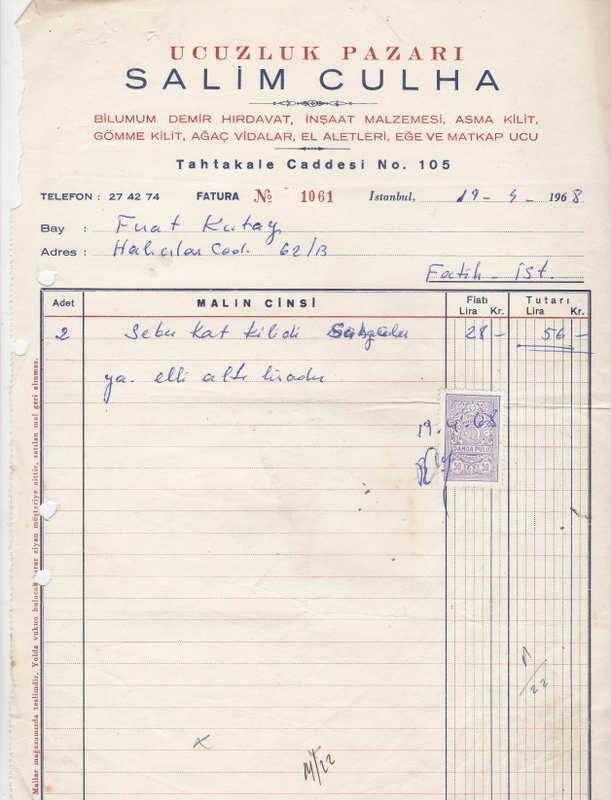 UCUZLUK PAZARI
SALİM CULHA
BİLUMUM DEMİR HIRDAVAT, İNŞAAT MALZEMESİ, ASMA KİLİT,
GÖMME KİLİT, AĞAÇ VİDALAR, EL ALETLERİ, EĞE VE MATKAP UCU
Tahtakale Caddesi No. 105
TELEFON : 27 42 74 FATURA № 1061 İstanbul, 19 - 4 - 1968
Bay : Fuat Kutay
Adres : Halıcılar Cad. 62/B
Fatih - İst.
Adet MALIN CİNSİ Fiatı Tutarı
Lira Kr. Lira Kr.
2 kat kilidi 28 - 56 -
ya. elli altı liradır
19.4.68
DAMGA PULU
M/22
M/22
Mallar mağazamızda teslimdir. Yolda vukuu bulacak zarar ziyan müşteriye aittir, satılan mal geri alınmaz.